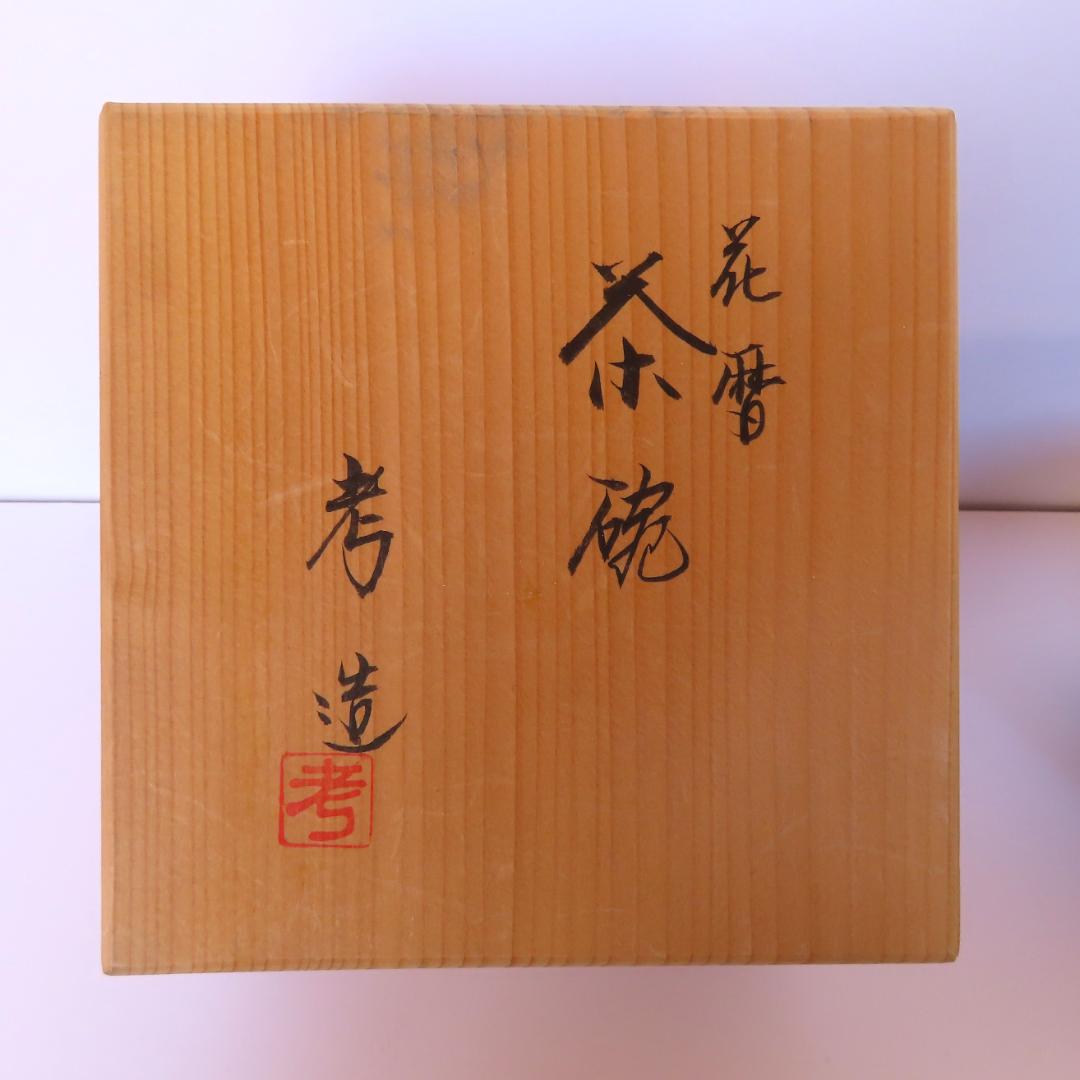 花暦
茶碗
考造
考